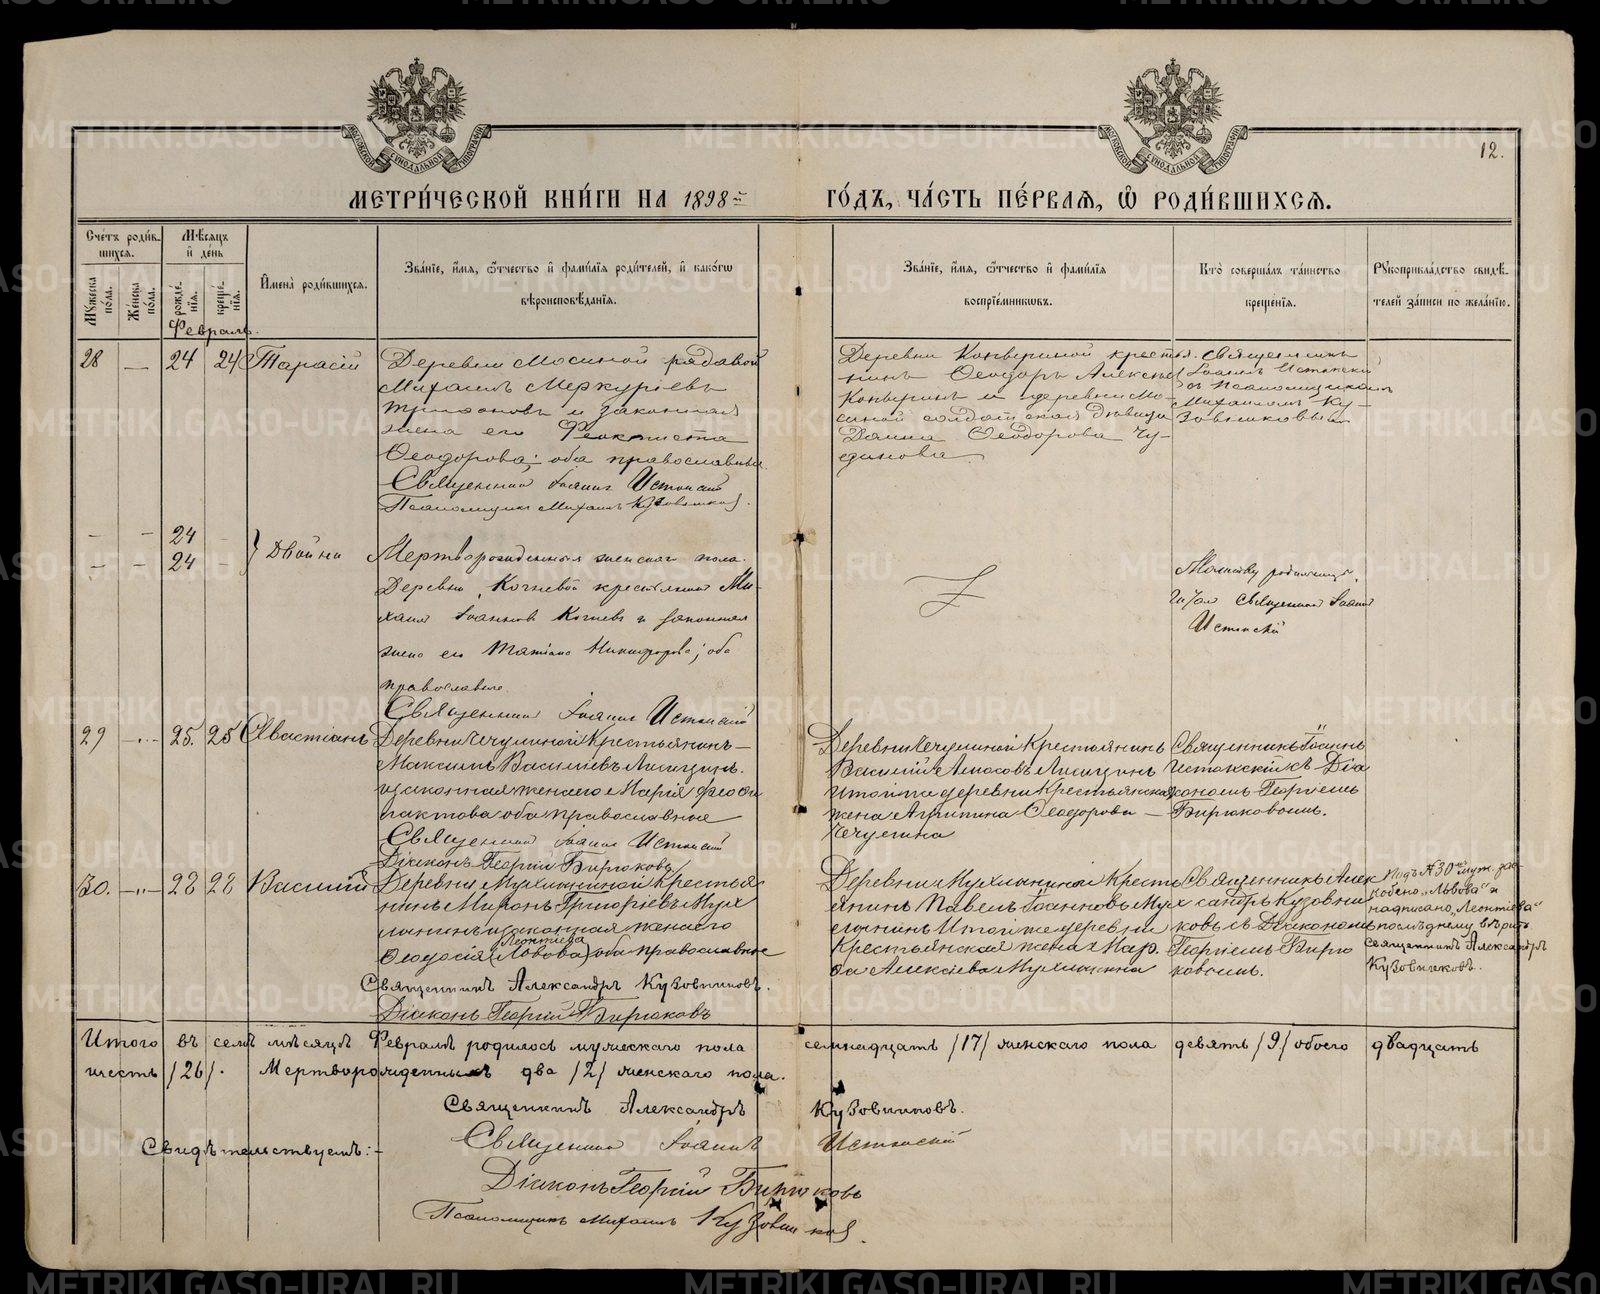 METRIKI.GASO-URAL.RU
12.
МЕТРИ́ЧЕСКОЙ КНИ́ГИ НА 1898 й
ГО́ДЪ, ЧА́СТЬ ПЕ́РВАЯ, Ѽ РОДИ́ВШИХСЯ.
Сче́тъ роди́в-
шихся.
Мѣ́сяцъ
и҆ де́нь
Мꙋ́жеска
по́ла.
Же́нска
по́ла.
рожде́-
нїѧ.
креще́-
нїѧ.
И҆мена̀ роди́вшихся.
Зва́нїе, и҆́мѧ, ѻ҆́тчество и҆ фами́лїѧ роди́телей, и҆ како́гѡ
вѣроисповѣ́данїѧ.
Зва́нїе, и҆́мѧ, ѻ҆́тчество и҆ фами́лїѧ
воспрїе́мниковъ.
Кто̀ соверша́лъ та́инство
креще́нїѧ.
Рꙋкоприкла́дство свидѣ́-
телей за́писи по жела́нїю.
Февраль.
28 — 24 24 Тарасій
Деревни Мосиной рядовой
Михаилъ Меркуріевъ
Трифоновъ и законная
жена его Феоктиста
Ѳеодорова; оба православные
Священникъ Іоаннъ Истокскій
Псаломщикъ Михаилъ Кузовниковъ.
Деревни Конвыриной кресть-
нинъ Ѳеодоръ Алексѣевъ
Конвыринъ и деревни Мо-
синой солдатская дѣвица
Ѳеодорова Чу-
динова.
Священникъ
Іоаннъ Истокскій
съ Псаломщикомъ
Михаиломъ Ку-
зовниковымъ
— — 24 —
— — 24 —
Двойни
Мертворожденныя женскаго пола.
Деревни Кочневой крестьянинъ Ми-
хаилъ Іоанновъ Кочневъ и законная
жена его Татіана Никифорова; оба
православные.
Священникъ Іоаннъ Истокскій
Молитву родильницѣ
читалъ Священникъ Іоаннъ
Истокскій
29 — 25. 25 Савастіанъ
Деревни Чечулиной Крестьянинъ —
Максимъ Василіевъ Лисицинъ.
и законная жена его Марія Феофи-
лактова оба православные
Священникъ Іоаннъ Истокскій
Діаконъ Георгій Бирюковъ
Деревни Чечулиной Крестьянинъ
Василій Лисицинъ
и той же деревни Крестьянская
жена Агрипина Ѳеодорова —
Чечулина
Священникъ Іоаннъ
Истокскій съ Діа-
кономъ Георгіемъ
Бирюковымъ.
30. — 28 28 Василій
Деревни Мухлыниной Крестья
нинъ Миронъ Григоріевъ Мух
лынинъ и законная жена его
Леонтіева
Ѳеодосія (Львова) оба православные
Священникъ Александръ Кузовниковъ.
Діаконъ Георгій Бирюковъ
Деревни Мухлыниной Кресть
янинъ Павелъ Іоанновъ Мух
лынинъ и той же деревни
Крестьянская жена Мар.
ѳа Алексіева Мухлынина
Священникъ Алек
сандръ Кузовни
ковъ съ Діакономъ
Георгіемъ Бирю
ковымъ.
Подъ № 30 муж. зас-
коблено „Львова“ и
надписано „Леонтіева“
послѣднему вѣрить
Священникъ Александръ
Кузовниковъ.
Итого въ семъ мѣсяцѣ Февралѣ родилось мужескаго пола семнадцать /17/ женскаго пола девять /9/ обоего двадцать
шесть /26/. Мертворожденныхъ два /2/ женскаго пола.
Священникъ Александръ Кузовниковъ.
Свидѣтельствуемъ:— Священникъ Іоаннъ Истокскій
Діаконъ Георгій Бирюковъ
Псаломщикъ Михаилъ Кузовниковъ.